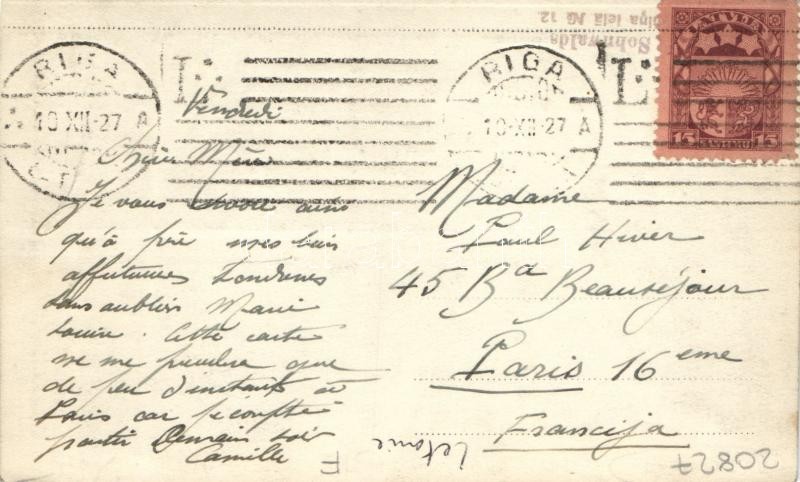 RIGA
10·XII·27 A
RIGA
10·XII·27 A
LATVIJA
15 SANTIMU 15
Sohnwalds
iela № 12
Vendredi
Chère Mère
Je vous envoie ainsi
qu'à père mes plus
affectueuses tendresses
sans oublier Marie
Louise. Cette carte
ne me précédera que
de peu d'instants à
Paris car je compte
partir Demain soir
Camille
Madame
Paul Hiver
45 Bd Beauséjour
Paris 16eme
Francija
Letonie
F
20827